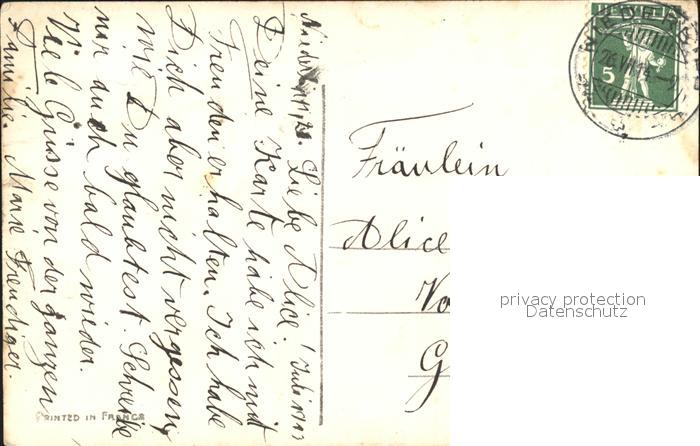 Liebe Alice!
Deine Karte habe ich mit
Freuden erhalten. Ich habe
Dich aber nicht vergessen,
wie Du glaubtest. Schreibe
mir auch bald wieder.
Viele Grüsse von der ganzen
Familie. Marie Freudiger.
PRINTED IN FRANCE
Fräulein
Alice
HELVETIA
5
privacy protection
Datenschutz